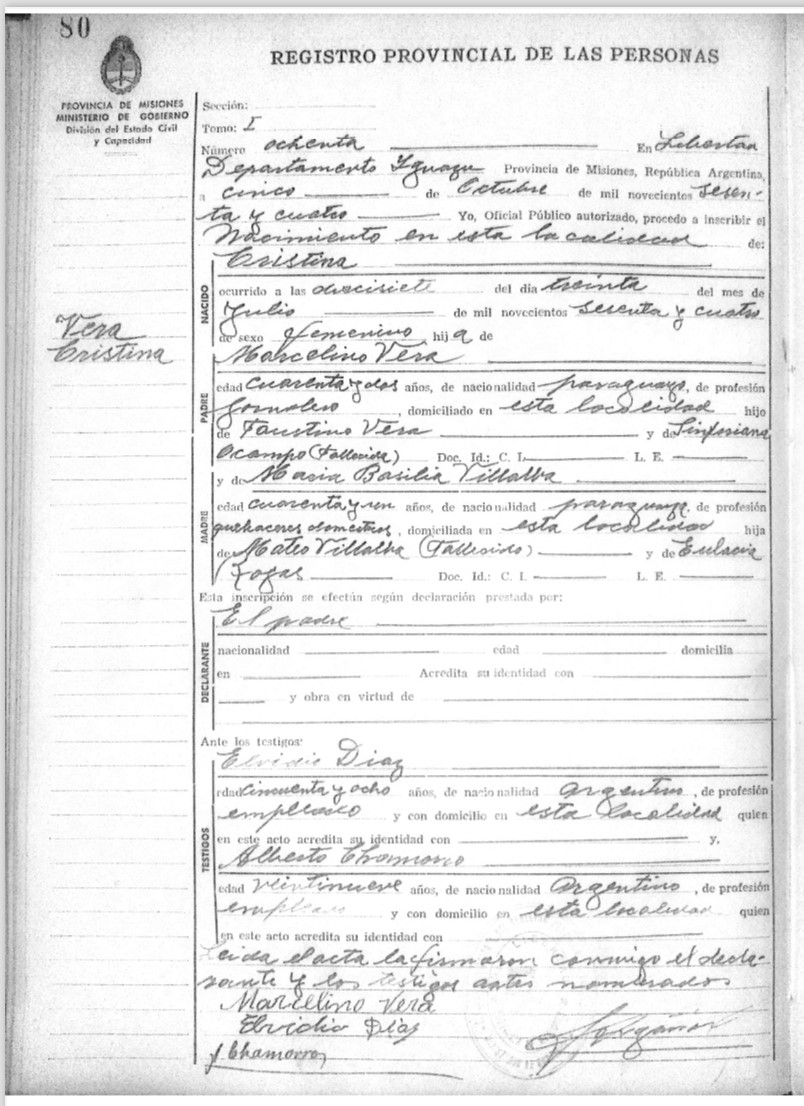 80
REGISTRO PROVINCIAL DE LAS PERSONAS
PROVINCIA DE MISIONES
MINISTERIO DE GOBIERNO
División del Estado Civil
y Capacidad
Sección:
Tomo: I
Número ochenta En Libertad
Departamento Yguazu Provincia de Misiones, República Argentina,
a cinco de Octubre de mil novecientos sesen-
ta y cuatro Yo, Oficial Público autorizado, procedo a inscribir el
Nacimiento en esta localidad de:
Cristina
NACIDO
ocurrido a las diecisiete del día treinta del mes de
Julio de mil novecientos sesenta y cuatro
de sexo femenino hija de
Marcelino Vera
Vera
Cristina
PADRE
edad cuarenta y dos años, de nacionalidad paraguayo, de profesión
Jornalero, domiciliado en esta localidad hijo
de Faustino Vera y de Sinforiana
Ocampo (Fallecida) Doc. Id.: C. I. L. E.
y de Maria Basilia Villalba
MADRE
edad cuarenta y un años, de nacionalidad paraguaya, de profesión
quehaceres domesticos, domiciliada en esta localidad hija
de Mateo Villalba (Fallecido) y de
Rojas Doc. Id.: C. I. L. E.
Esta inscripción se efectúa según declaración prestada por:
El padre
DECLARANTE
nacionalidad edad domicilia
en Acredita su identidad con
y obra en virtud de
Ante los testigos:
Elvidio Diaz
TESTIGOS
edad cincuenta y ocho años, de nacionalidad argentino, de profesión
empleado y con domicilio en esta localidad quien
en este acto acredita su identidad con y,
Alberto Chamorro
edad veintinueve años, de nacionalidad Argentino, de profesión
empleado y con domicilio en esta localidad quien
en este acto acredita su identidad con
Leida el acta la firmaron conmigo el decla-
rante y los testigos antes nombrados
Marcelino Vera
Elvidio Diaz
Chamorro